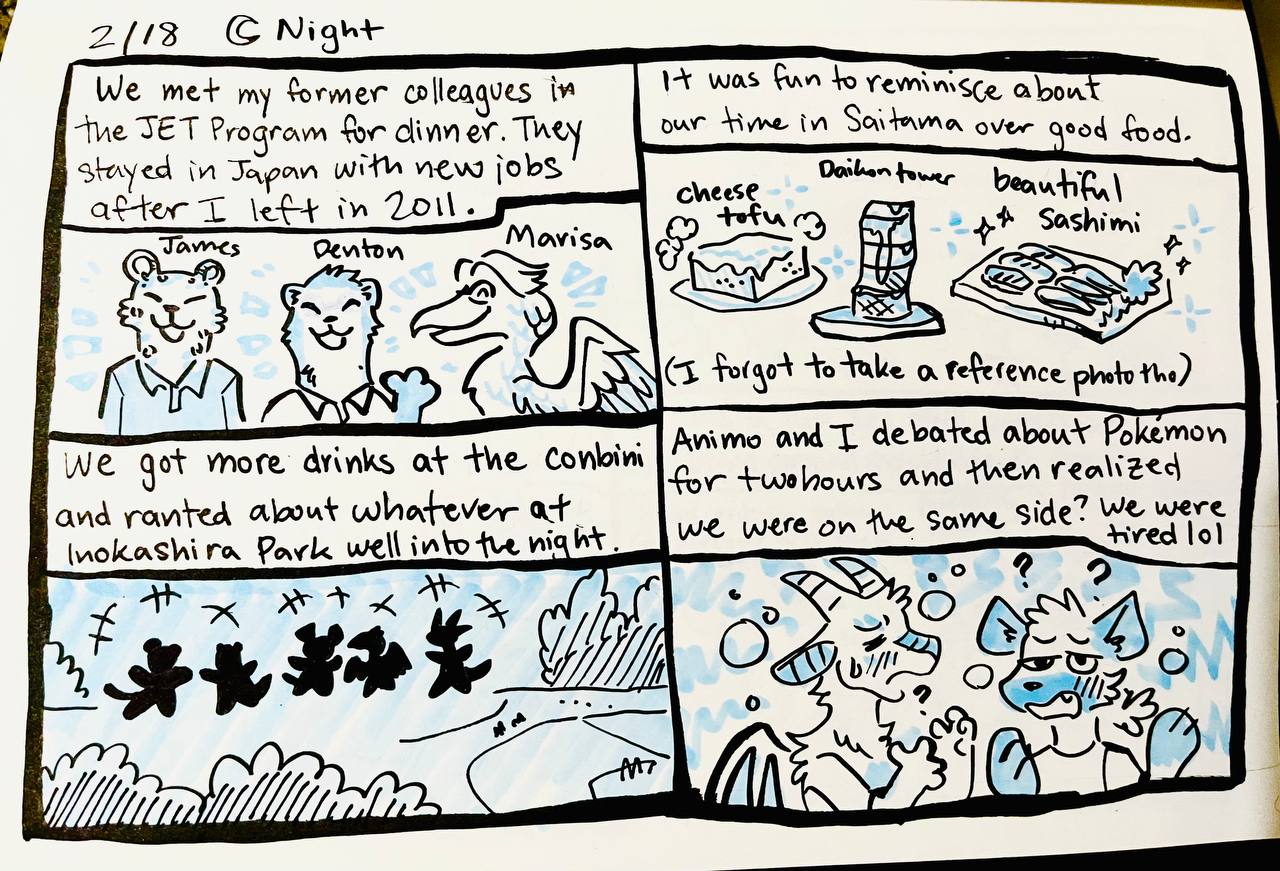 2/18 © Night
We met my former colleagues in
the JET Program for dinner. They
stayed in Japan with new jobs
after I left in 2011.
James
Denton
Marisa
It was fun to reminisce about
our time in Saitama over good food.
cheese
tofu
Daikon tower
beautiful
Sashimi
(I forgot to take a reference photo tho)
We got more drinks at the conbini
and ranted about whatever at
Inokashira Park well into the night.
Animo and I debated about Pokémon
for two hours and then realized
we were on the same side? We were
tired lol
?
?
?